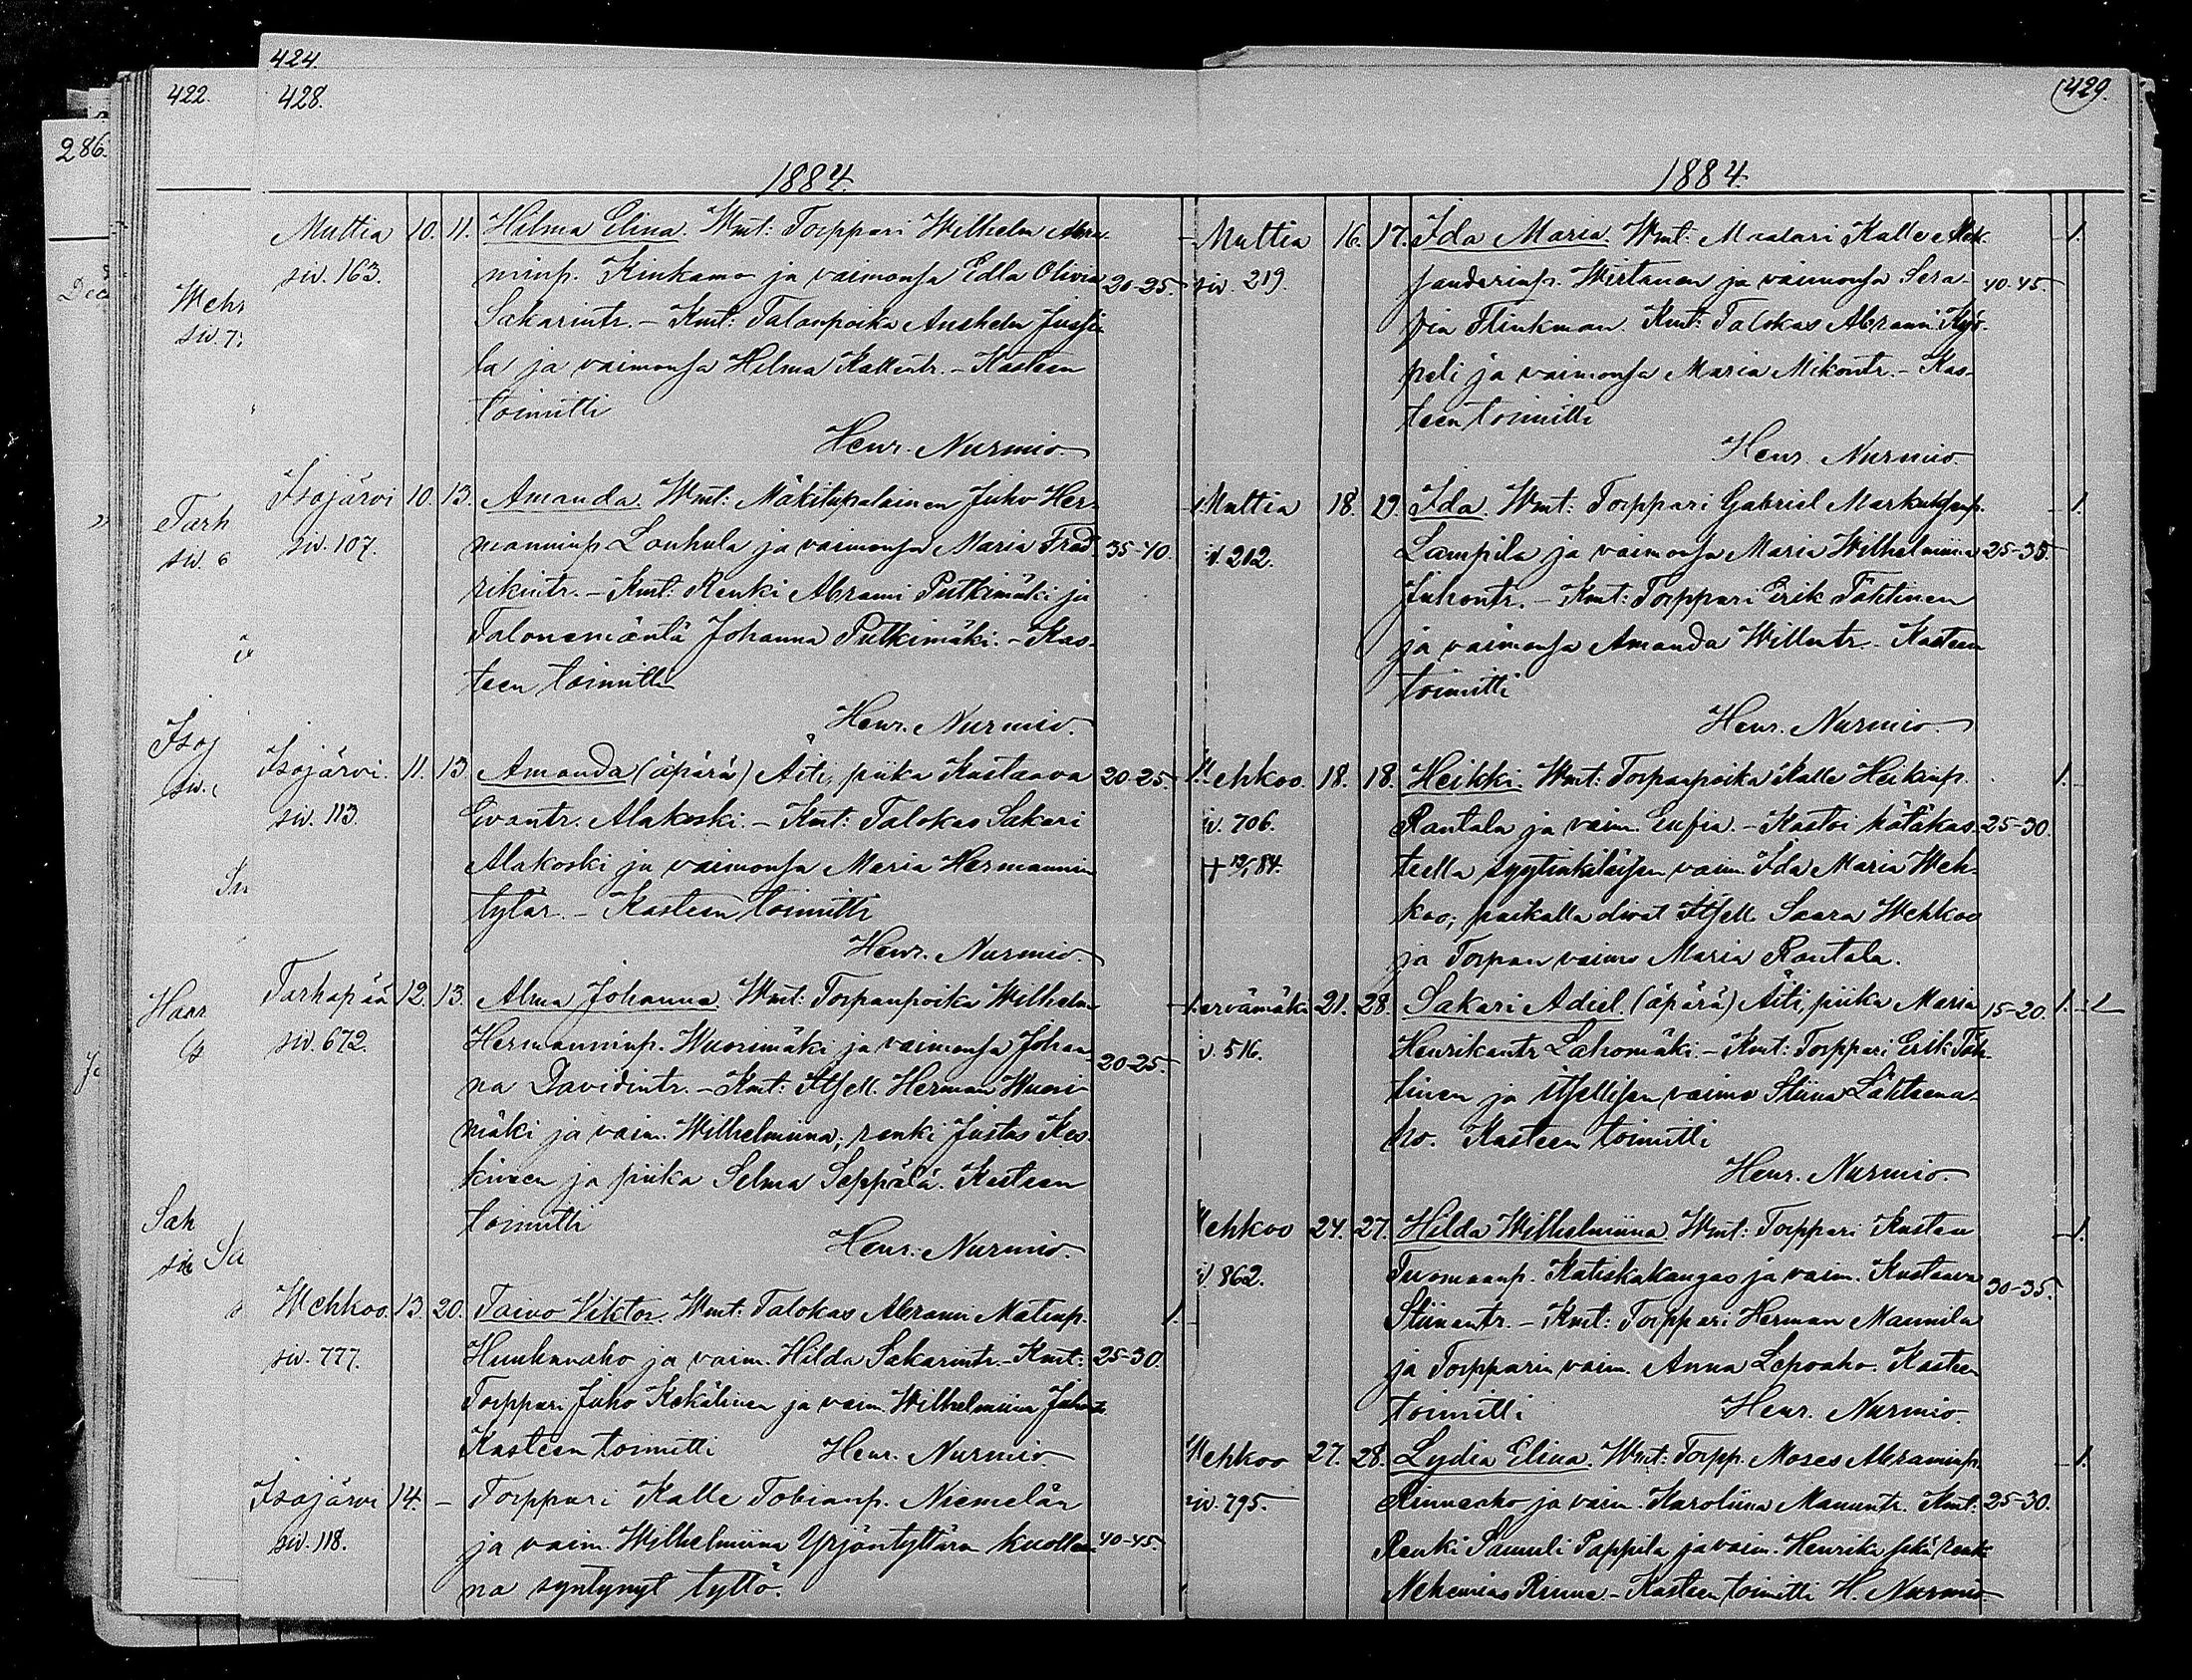 424.
422.
428.
286.
1884.
Multia 10. 11. Hilma Elina. Wmt: Torppari Wilhelm
siv. 163. minp. Kinkamo ja vaimonsa Edla Olivia 20-25.
Sakarintr. – Kmt: Talonpoika Anshelm Jussi-
la ja vaimonsa Helma Kallentr. – Kasteen
toimitti
Henr. Nurmio.
Isojärvi 10. 13. Amanda. Wmt: Mäkitupalainen Juho Her-
siv. 107. manninp. Louhula ja vaimonsa Maria Fred- 35-40.
rikintr. – Kmt: Renki Abrami Putkimäki ja
Talonemäntä Johanna Putkimäki. – Kas-
teen toimitti
Henr. Nurmio.
Isojärvi. 11. 13. Amanda (äpärä) Äiti, piika Kustaava 20-25.
siv. 113. Eivantr. Alakoski. – Kmt: Talokas Sakari
Alakoski ja vaimonsa Maria Hermannin
tytär. – Kasteen toimitti
Henr. Nurmio.
Tarhapää 12. 13. Alma Johanna. Wmt: Torpanpoika Wilhelm
siv. 672. Hermanninp. Wuorimäki ja vaimonsa Johan- 20-25.
na Davidintr. – Kmt: Itsell. Herman Wuori-
mäki ja vaim. Wilhelmiina; renki Justas Kes-
kinen ja piika Selma Seppälä. Kasteen
toimitti
Henr. Nurmio.
Wehkoo. 13. 20. Taivo Viktor. Wmt: Talokas Abrami Matinp. 1.
siv. 777. Huuhanaho ja vaim. Hilda Sakarintr. – Kmt: 25-30.
Torppari Juho Kekälinen ja vaim. Wilhelmiina Juhontr.
Kasteen toimitti Henr. Nurmio.
Isojärvi 14. – Torppari Kalle Tobianp. Niemelän
siv. 118. ja vaim. Wilhelmiina Yrjöntyttären kuollee- 40-45.
na syntynyt tyttö.
429.
1884.
Multia 16. 17. Ida Maria. Wmt: Maalari Kalle Alek- 1.
siv. 219. sanderinp. Wirtanen ja vaimonsa Sera- 40-45.
via Flinkman. Kmt: Talokas Abrami Kyö-
peli ja vaimonsa Maria Mikontr. – Kas-
teen toimitti
Henr. Nurmio.
Multia 18. 19. Ida. Wmt: Torppari Gabriel Markuksenp. 1.
212. Lampila ja vaimonsa Maria Wilhelmiina 25-35.
Juhontr. – Kmt: Torppari Erik Tähtinen
ja vaimonsa Amanda Willentr. – Kasteen
toimitti
Henr. Nurmio.
Wehkoo. 18. 18. Heikki. Wmt: Torpanpoika Kalle Heikinp. 1.
706. Rantala ja vaim. Eufia. – Kastoi hätäkas- 25-30.
teella syytinkiläisen vaim. Ida Maria Weh-
koo; paikalla olivat Itsell. Saara Wehkoo
ja Torpan vaimo Maria Rantala.
21. 28. Sakari Adiel. (äpärä) Äiti, piika Maria 15-20. 1.
516. Henrikantr Lahomäki. – Kmt: Torppari Erik Täh-
tinen ja itsellisen vaimo Stiina Lähteena-
ho. Kasteen toimitti
Henr. Nurmio.
Wehkoo 24. 27. Hilda Wilhelmiina. Wmt: Torppari Kustaa 1.
862. Tuomaanp. Katiskakangas ja vaim. Kustaava 30-35.
Stiinantr. – Kmt: Torppari Herman Mannila
ja Torpparin vaim. Anna Lepoaho. Kasteen
toimitti Henr. Nurmio.
Wehkoo 27. 28. Lydia Elina. Wmt: Torpp. Moses Abraminp. 1.
siv. 795. Rinneaho ja vaim. Karoliina Manuntr. Kmt: 25-30.
Renki Samuli Pappila ja vaim. Henrika sekä renki
Nehemias Rinne. – Kasteen toimitti H. Nurmio.